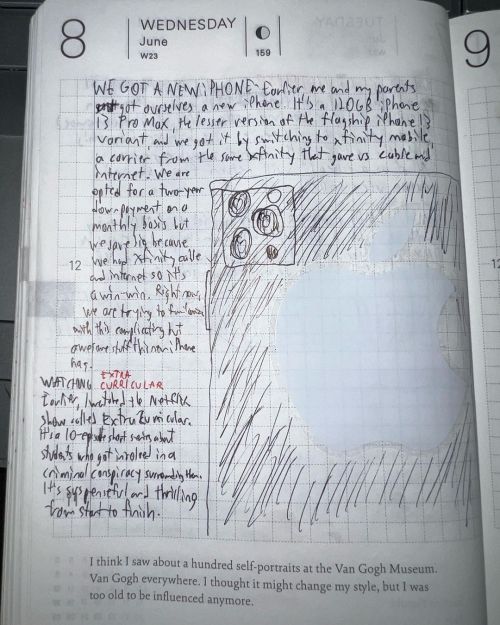 8
WEDNESDAY
June
W23
159
9
WE GOT A NEW iPHONE - Earlier, me and my parents
got ourselves a new iPhone. It's a 120GB iPhone
13 Pro Max, the lesser version of the flagship iPhone 13
variant, and we got it by switching to xfinity mobile,
a carrier from the same xfinity that gave us cable and
internet. We are
opted for a two-year
down payment on a
monthly basis but
we save big because
we had xfinity cable
and internet so it's
a win-win. Right now,
we are trying to
with this complicating but
awesome stuff this new iPhone
has.
12
WATCHING EXTRA
CURRICULAR
Earlier I watched the Netflix
show called Extracurricular.
It's a 10-episode short series about
students who got involved in a
criminal conspiracy surrounding them.
It's suspenseful and thrilling
from start to finish.
I think I saw about a hundred self-portraits at the Van Gogh Museum.
Van Gogh everywhere. I thought it might change my style, but I was
too old to be influenced anymore.